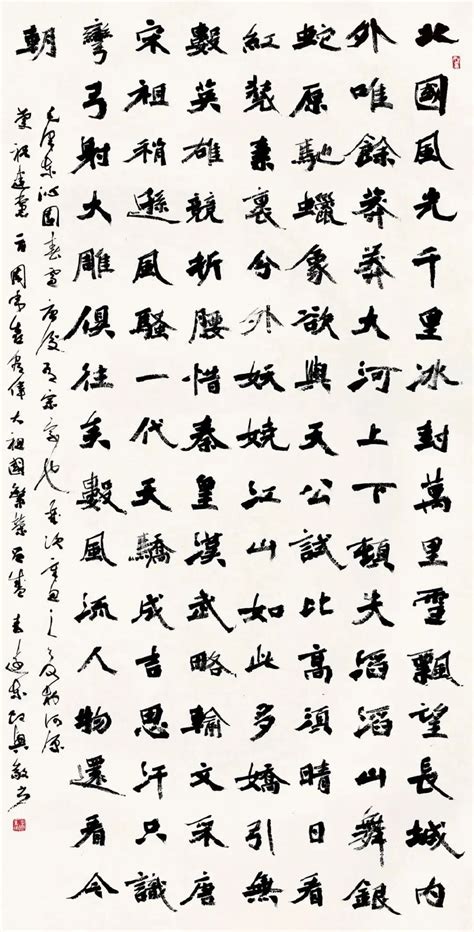 北國風光千里冰封萬里雪飄望長城内
外唯餘莽莽大河上下頓失滔滔山舞銀
蛇原馳蠟象欲與天公試比高須晴日看
紅裝素裹兮外妖嬈江山如此多嬌引無
數英雄競折腰惜秦皇漢武略輸文采唐
宋祖稍遜風騷一代天驕成吉思汗只識
彎弓射大雕俱往矣數風流人物還看今
朝
毛澤東沁園春雪
偉大祖國繁榮